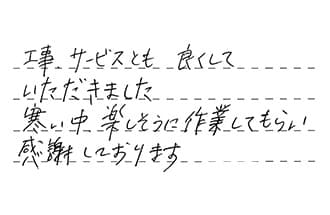 工事、サービスとも 良くして
いただきました
寒い中、楽しそうに作業してもらい
感謝しております